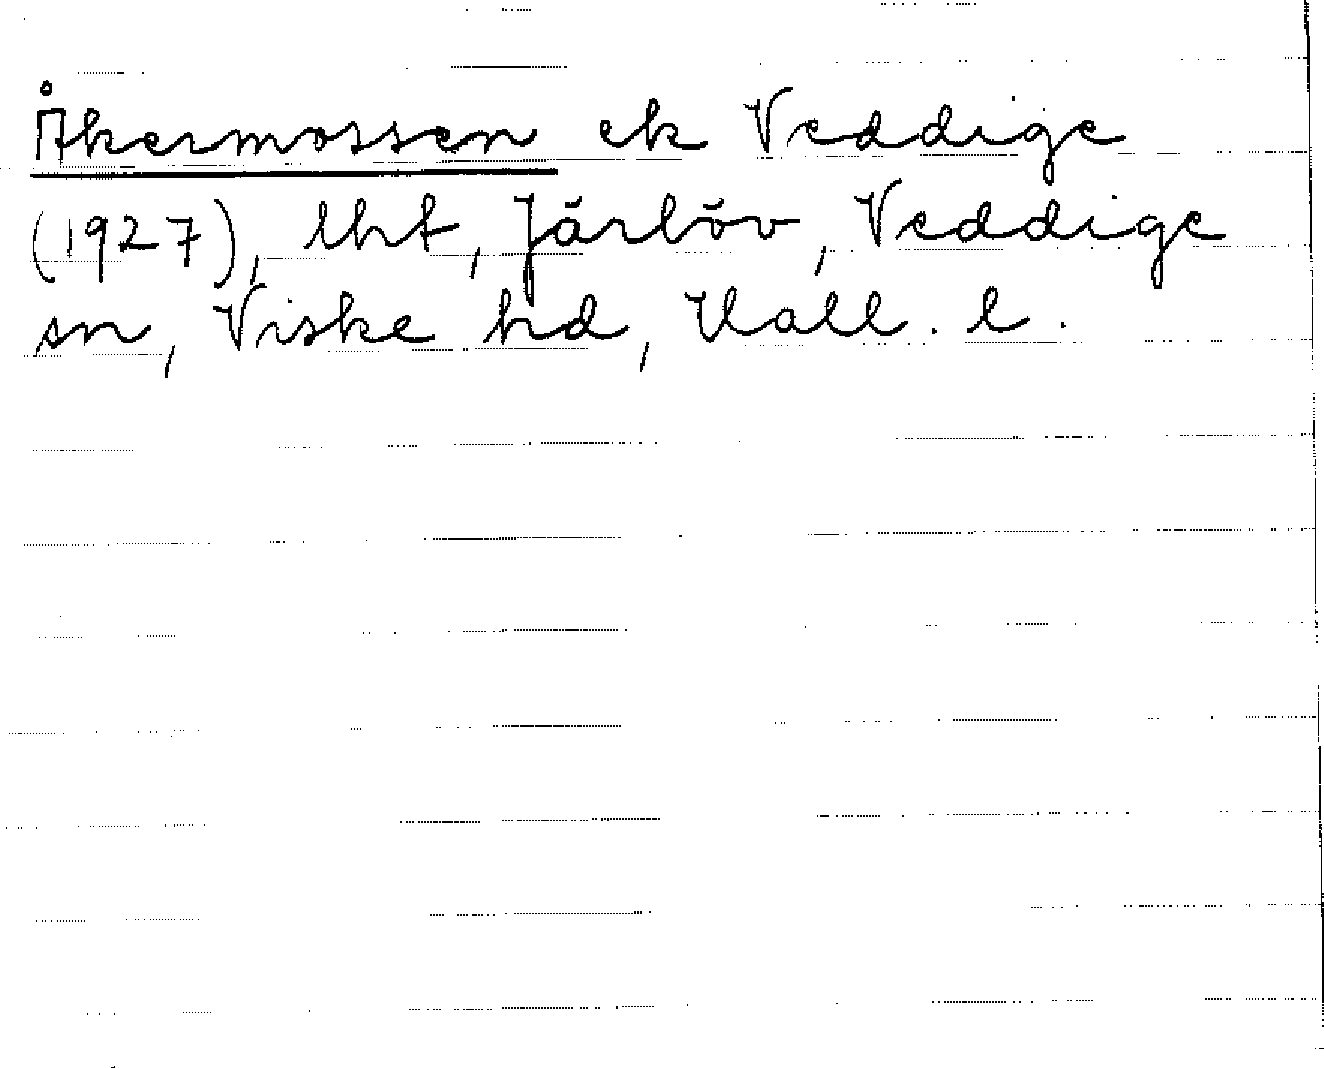 Åkermossen ek Veddige
(1927), lht, Järlöv, Veddige
sn, Viske hd, Hall. l.